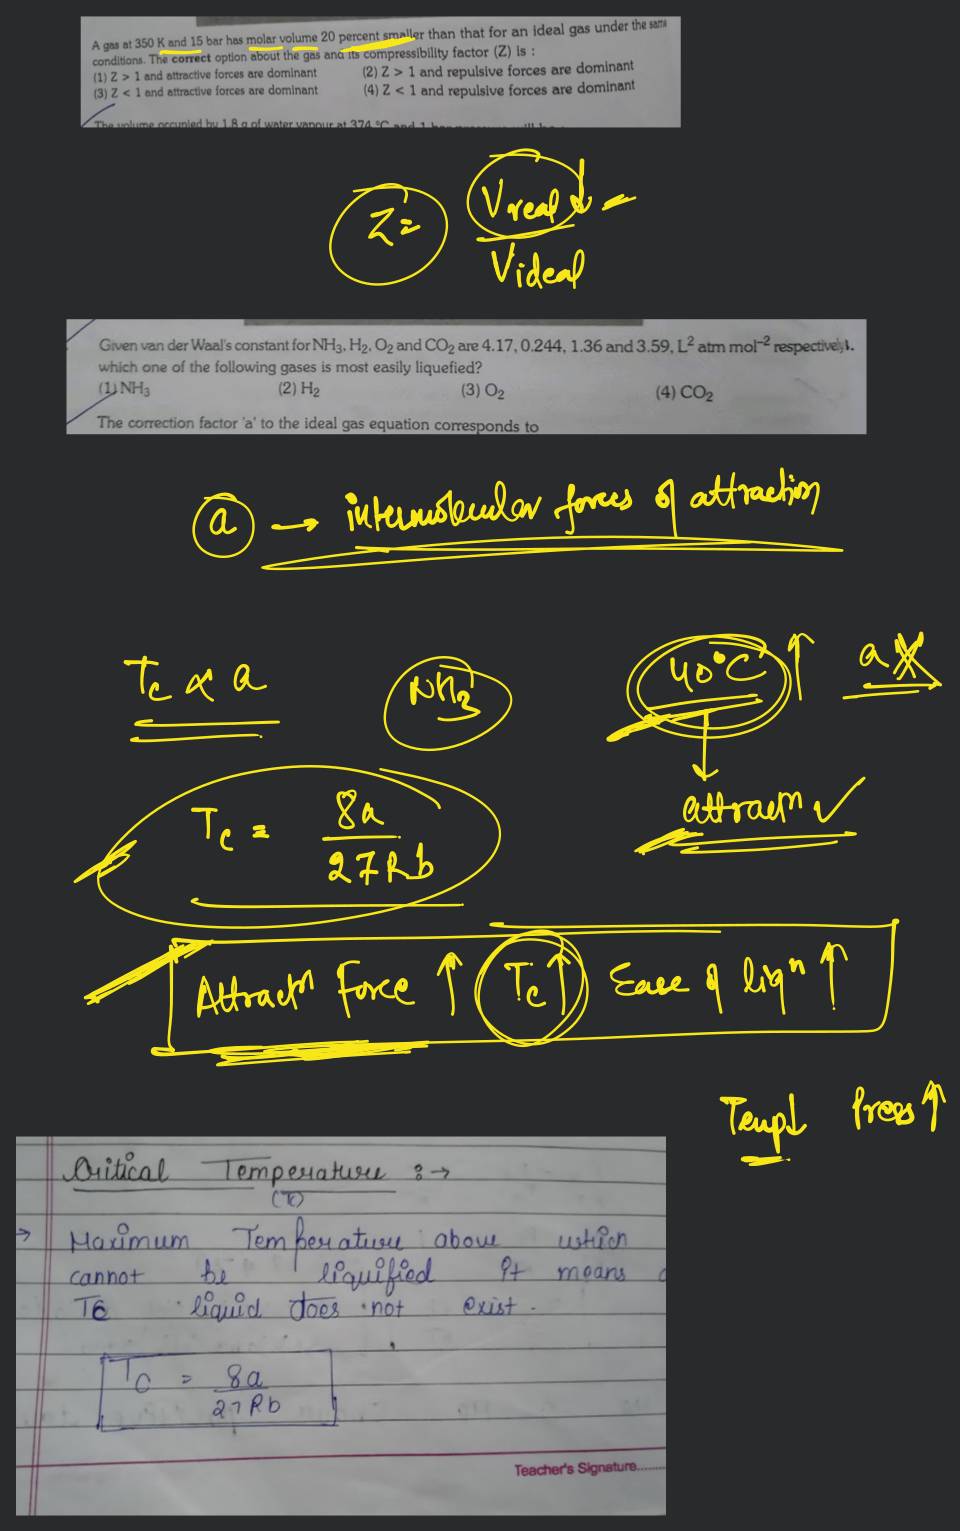 A gas at 350 K and 15 bar has molar volume 20 percent smaller than that for an ideal gas under the same
conditions. The correct option about the gas and its compressibility factor (Z) is :
(1) Z > 1 and attractive forces are dominant (2) Z > 1 and repulsive forces are dominant
(3) Z < 1 and attractive forces are dominant (4) Z < 1 and repulsive forces are dominant
The volume occupied by 1.8 g of water vapour at 374 °C and 1 bar
Z = Vreal ↓
Videal
Given van der Waal's constant for NH3, H2, O2 and CO2 are 4.17, 0.244, 1.36 and 3.59, L² atm mol⁻² respectively.
which one of the following gases is most easily liquefied?
(1) NH3 (2) H2 (3) O2 (4) CO2
The correction factor 'a' to the ideal gas equation corresponds to
a → intermolecular forces of attraction
Tc ∝ a NH3 40°C ↑ a
Tc = 8a
27Rb
attractn ✓
Attractn Force ↑ Tc ↑ Ease of liqn ↑
Temp↓ Press ↑
Critical Temperature :→
(Tc)
→ Maximum Temperature above which
cannot be liquified It means
Tc liquid does not exist.
Tc = 8a
27Rb
Teacher's Signature........